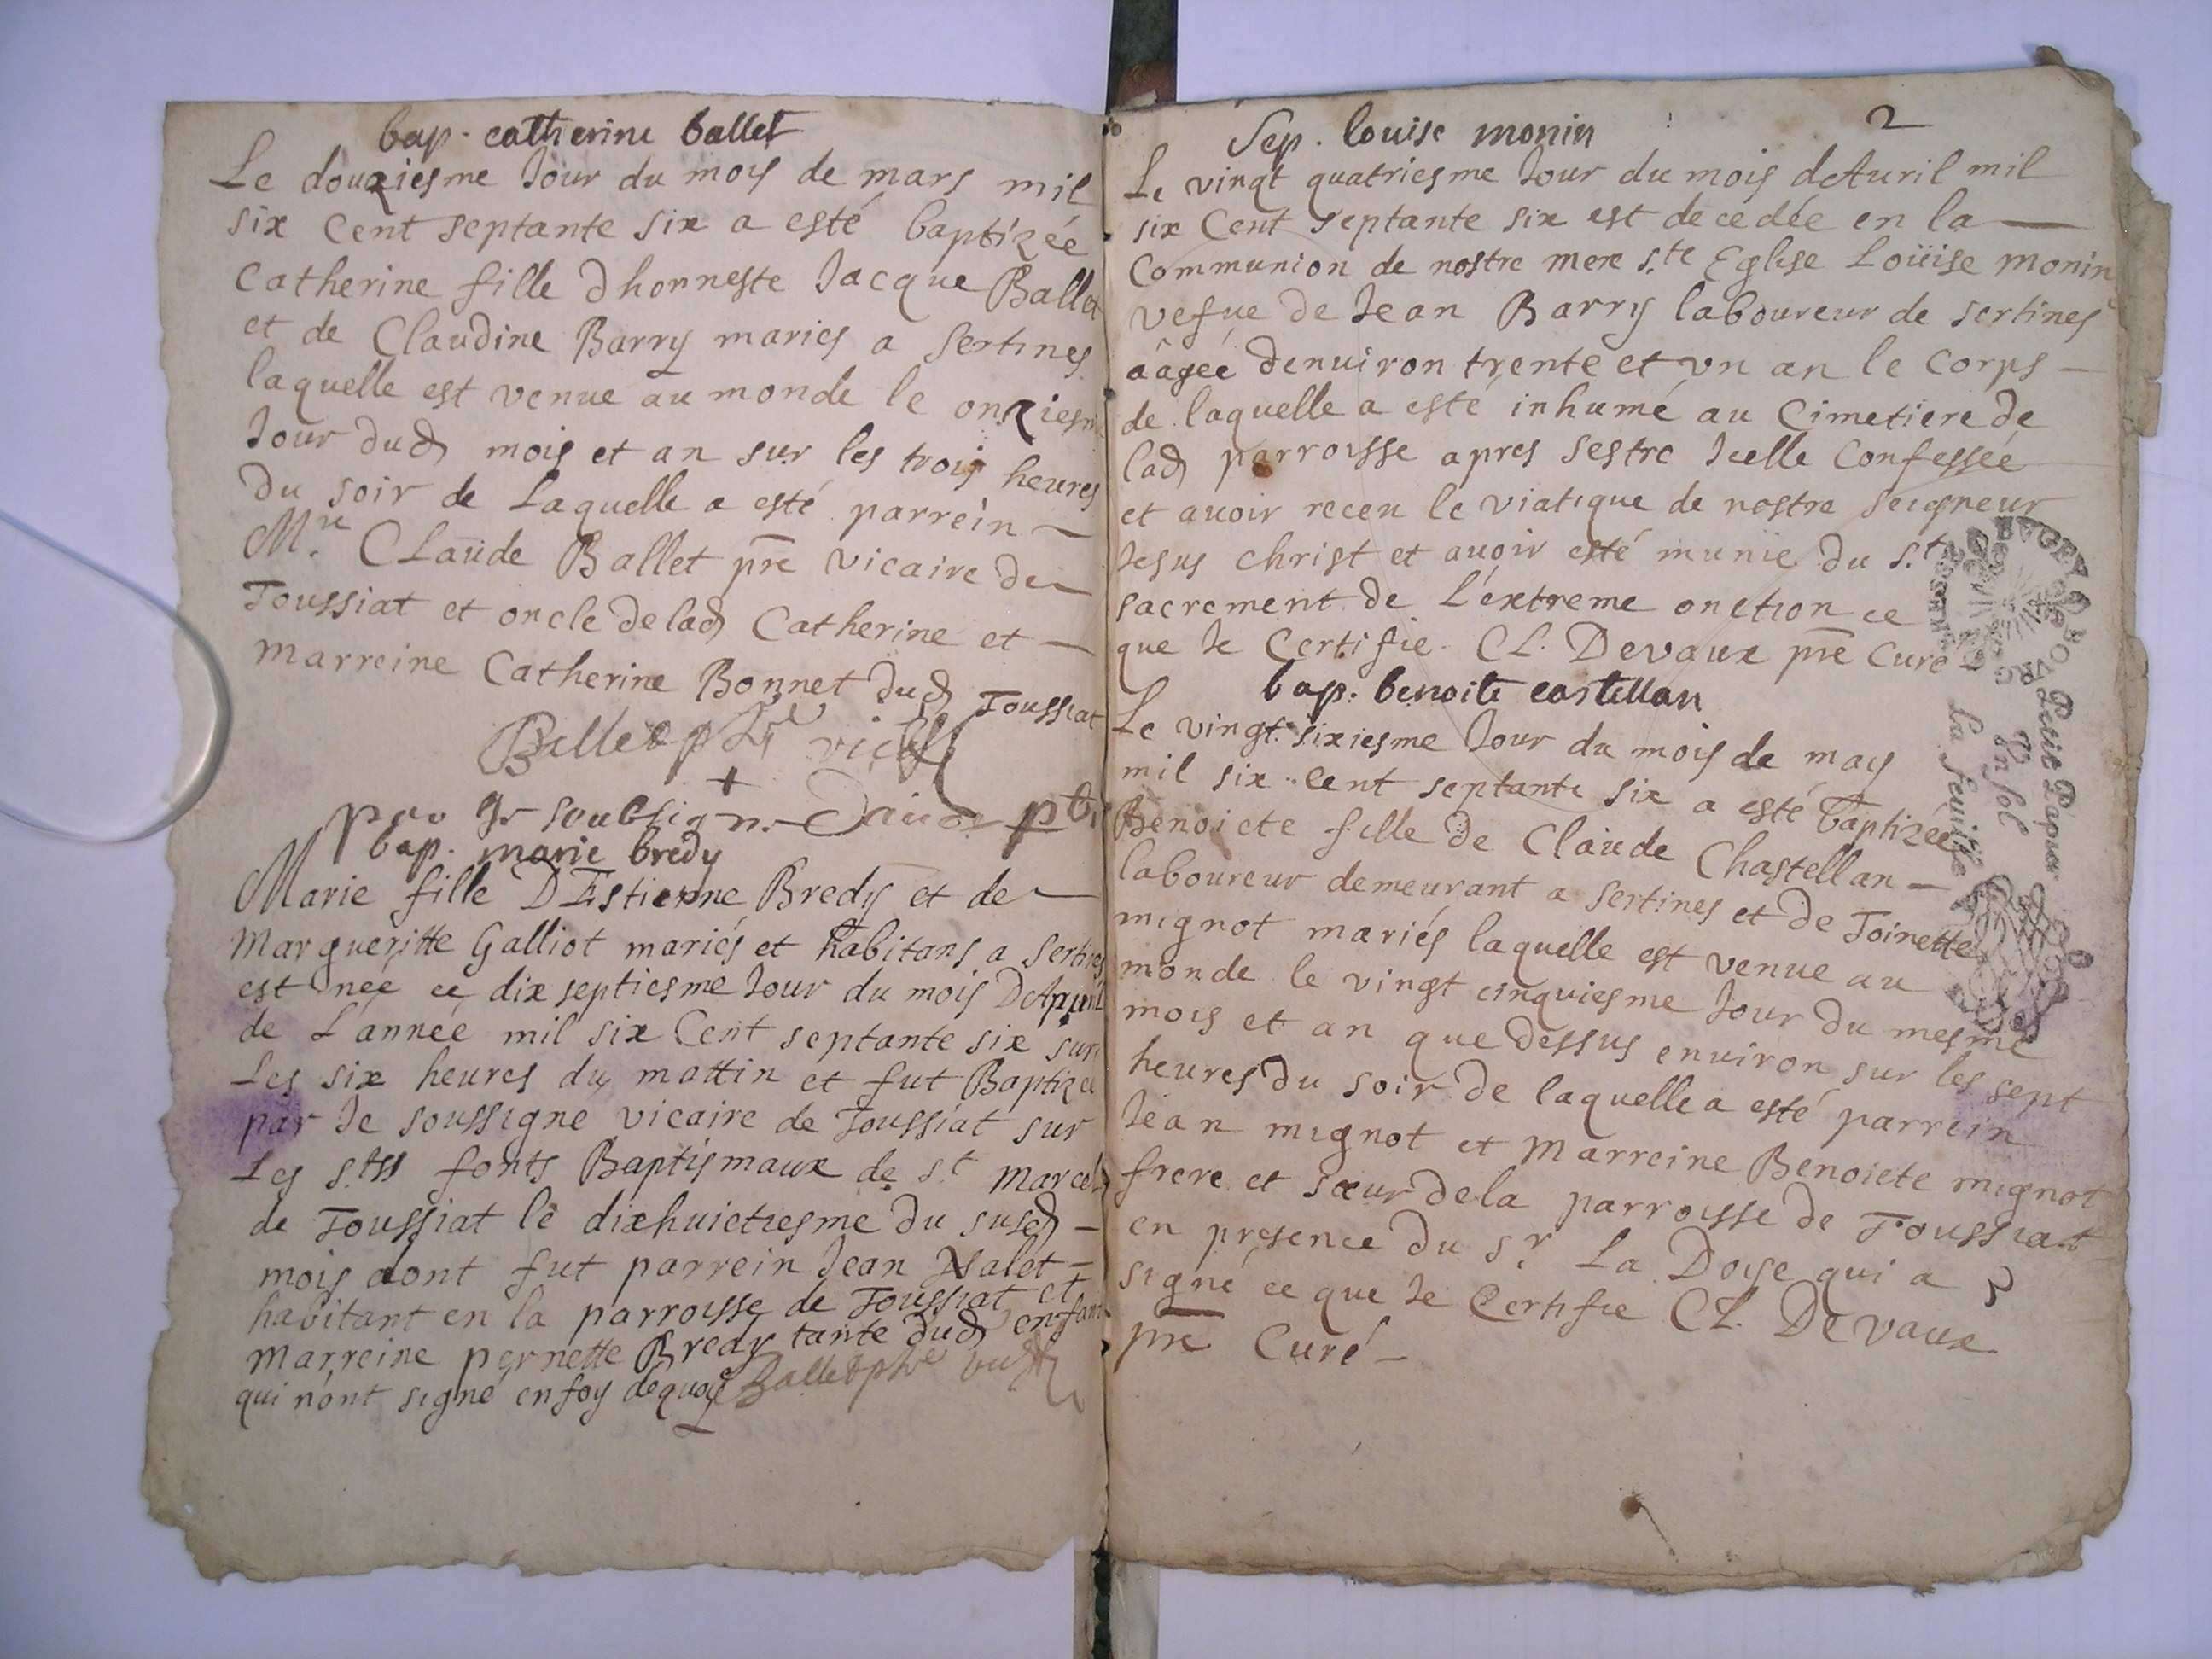 bap. catherine ballet
Le douziesme Jour du moys de mars mil
six Cent septante six a esté baptizée
Catherine fille dhonneste Jacque Ballet
et de Claudine Barry mariés a Sertines
laquelle est venue au monde le onziesme
Jour dud mois et an sur les trois heures
du soir de Laquelle a esté parrein
Mre Claude Ballet pre vicaire de
Toussiat et oncle delad Catherine et
marreine Catherine Bonnet dud Toussiat
Ballet ptre
par Je soubsign.
bap. marie bredy
Marie fille D'Estienne Bredy et de
Margueritte Galliot mariés et habitans a Sertines
est née ce dix septiesme Jour du mois DApuril
de L'année mil six Cent septante six sur
Les six heures du mattin et fut Baptizee
par Je soussigne vicaire de Toussiat sur
Les s.tss fonts Baptismaux de st Marcel
de Toussiat le dixhuictiesme du susd
mois dont fut parrein Jean Nalet
habitant en la parroisse de Toussiat et
marreine pernette Bredy tante dud enfant
qui n'ont signé enfoy dequoy Ballet ptre
Sep. louise monin 2
Le vingt quatriesme Jour du mois dAuril mil
six Cent septante six est decedée en la
Communion de nostre mere s.te Eglise Loüise monin
vefue de Jean Barry laboureur de sertines
aagée denuiron trente et vn an le Corps
de laquelle a esté inhumé au Cimetiere de
lad parroisse apres sestre Icelle Confessée
et auoir receu le viatique de nostre seigneur
Jesus Christ et auoir esté munie du s.t
sacrement de L'extreme onction ce
que Je Certifie. CL. Devaux pre Curé
bap. benoite castellan
Le vingt sixiesme Jour du mois de may
mil six cent septante six a esté baptizée
Benoicte fille de Claude Chastellan
laboureur demeurant a sertines et de Toinette
mignot mariés laquelle est venue au
monde le vingt cinquiesme Jour du mesme
mois et an que dessus enuiron sur les sept
heures du soir de laquelle a esté parrein
Jean mignot et Marreine Benoicte mignot
frere et sœur dela parroisse de Toussiat
en presence du s.r La Doye qui a
signé ce que Je Certifie CL. Devaux
pre Curé
Petit Papier
Vn sol
La feuille